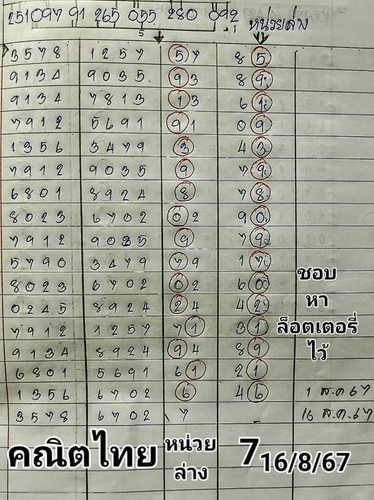 251097 91 265 055 280 092 หน่วยล่าง
5
3578 1257 57 85
9134 9035 93 89
9134 7813 13 61
7912 5691 91 09
1356 3479 3 43
7912 9035 9 79
6801 8924 8 78
8023 6702 02 90
7912 9035 9 79
5790 3479 79 17
8023 6702 02 60
0245 8924 24 42
7912 1257 71 31
9134 8924 94 89
6801 5691 61 21
1356 6702 6 46 1 ส.ค 67
3578 6702 7 16 ส.ค.67
ชอบ
หา
ล็อตเตอรี่
ไว้
คณิตไทย หน่วย
ล่าง 7 16/8/67